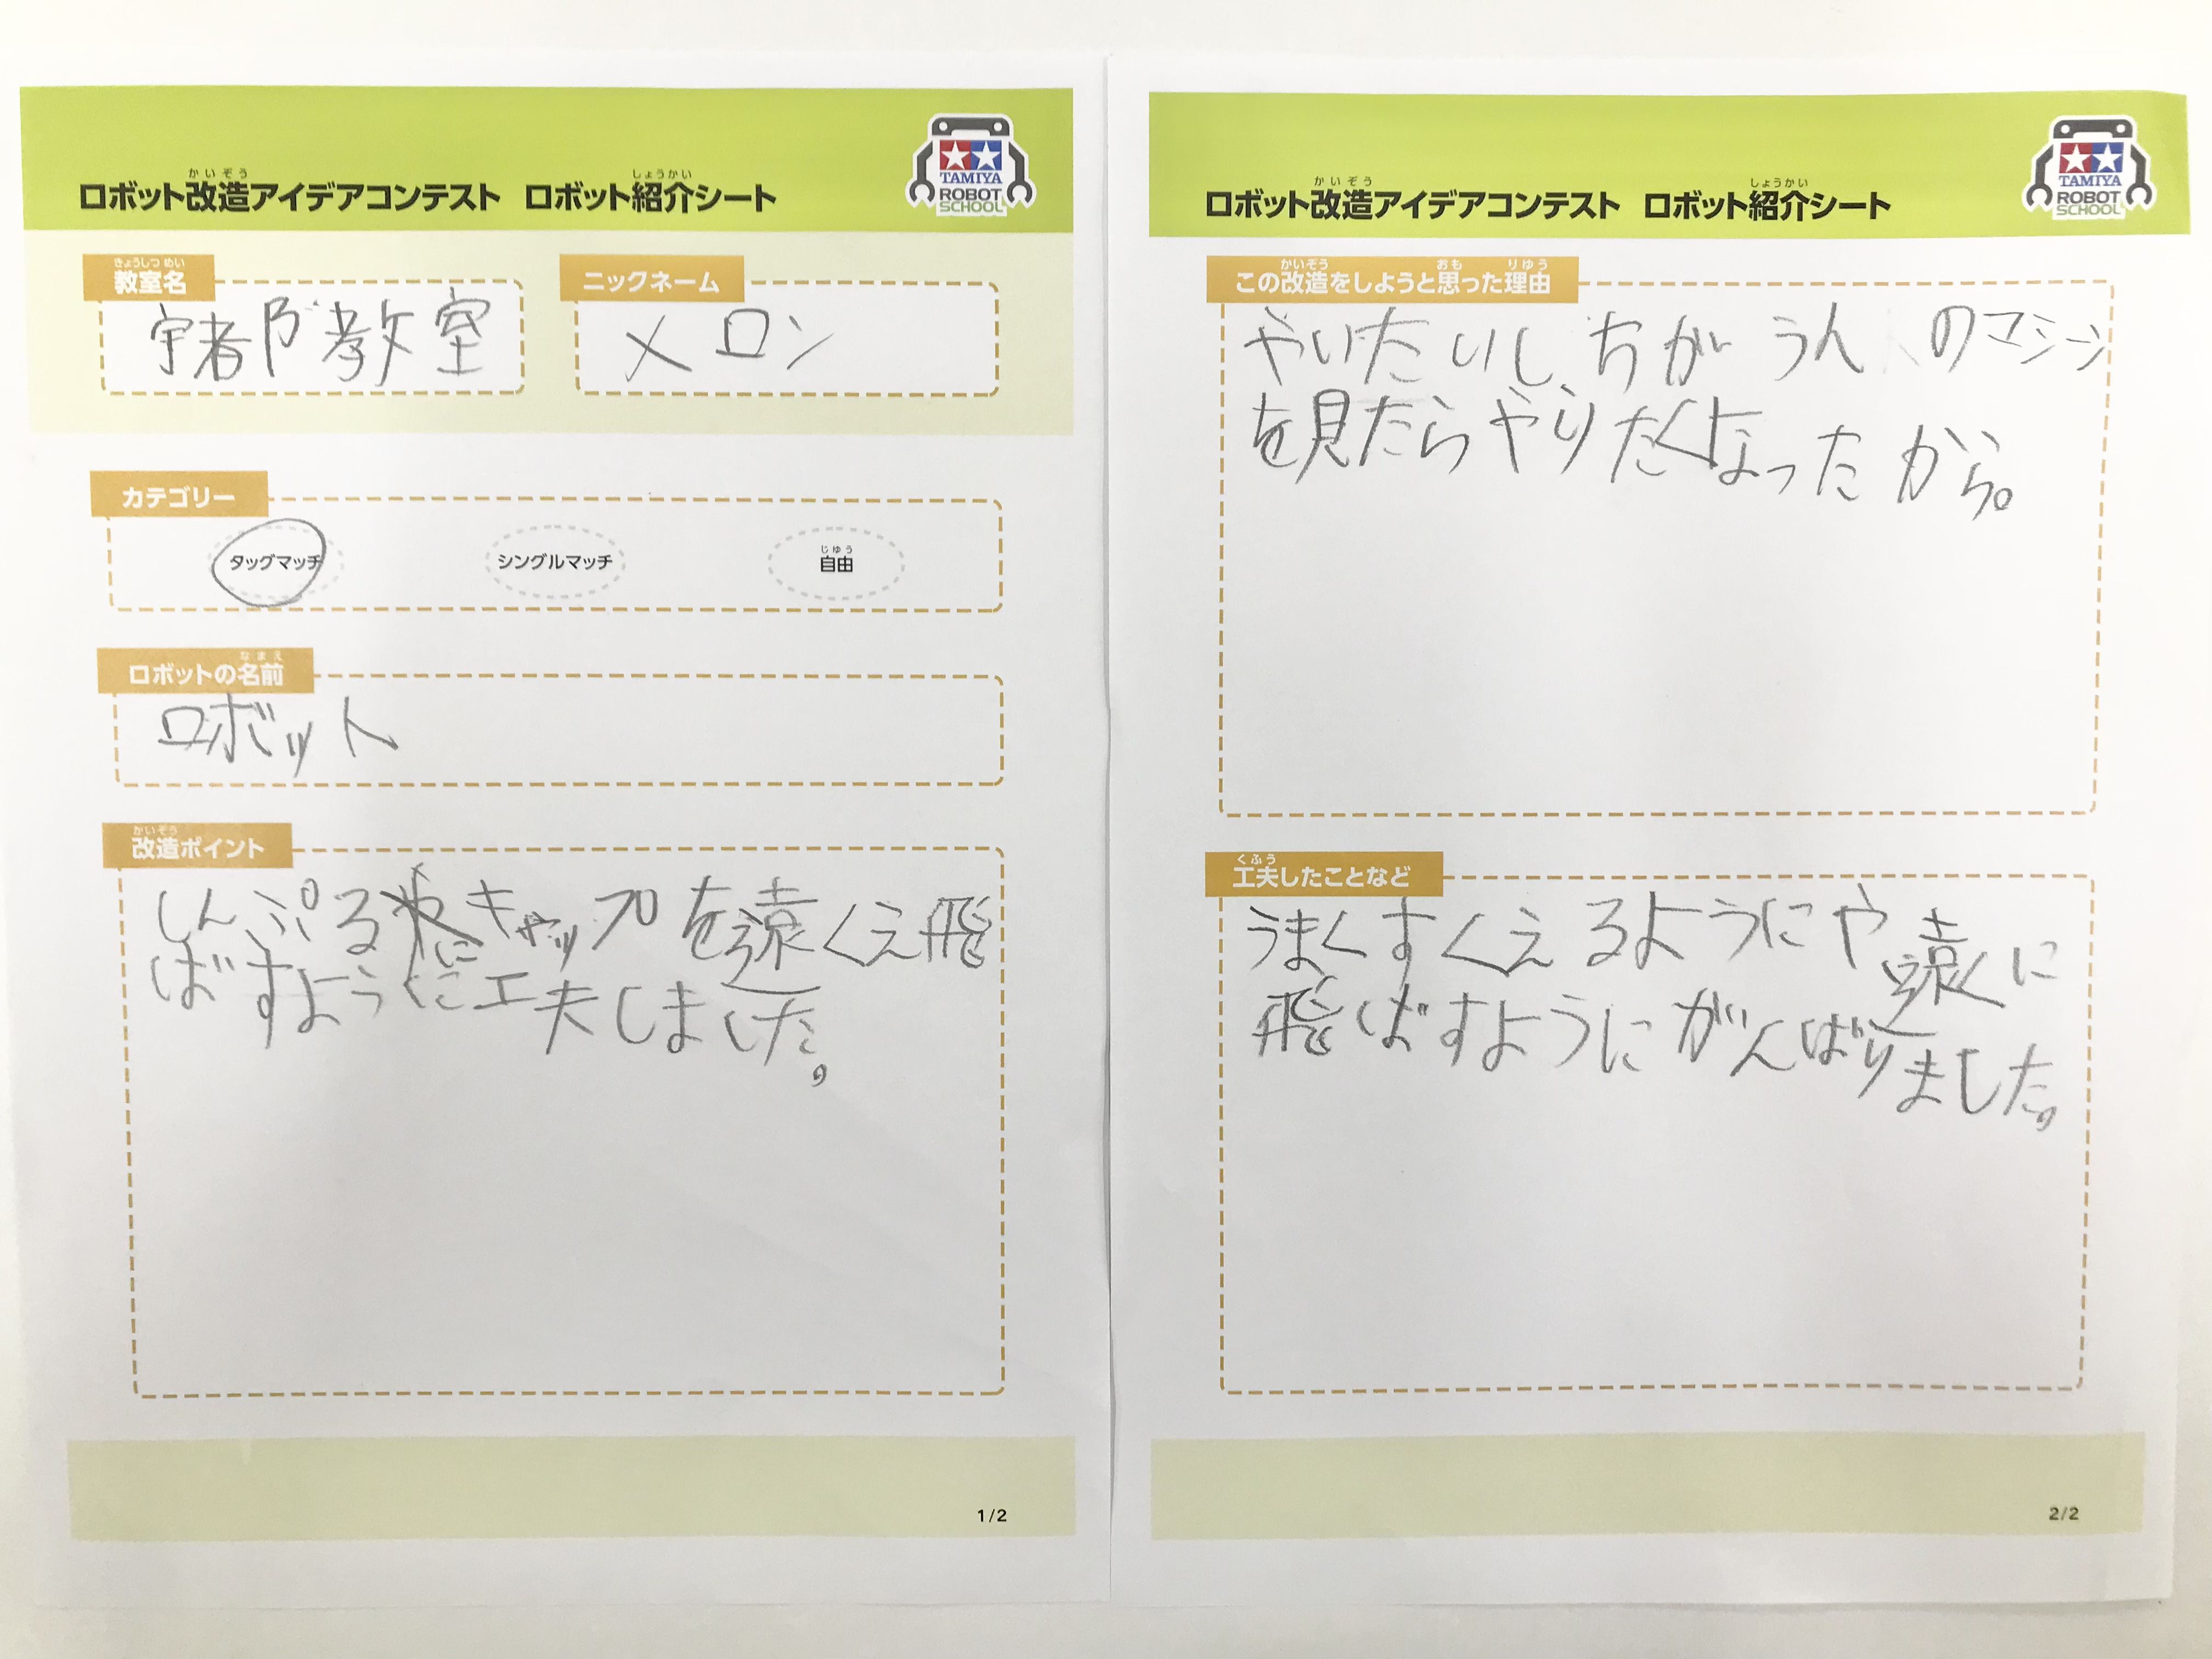 かいぞう しょうかい
ロボット改造アイデアコンテスト ロボット紹介シート
TAMIYA
ROBOT
SCHOOL
きょうしつ めい
教室名
宇都部教室
ニックネーム
メロン
カテゴリー
タッグマッチ
シングルマッチ
じゆう
自由
なまえ
ロボットの名前
ロボット
かいぞう
改造ポイント
しんぷるにキャップを遠くえ飛
ばすように工夫しました。
1/2
かいぞう しょうかい
ロボット改造アイデアコンテスト ロボット紹介シート
TAMIYA
ROBOT
SCHOOL
かいぞう おも りゆう
この改造をしようと思った理由
やいたいしちがう人のマシーン
を見たらやりたくなったから。
くふう
工夫したことなど
うまくすくえるようにや遠くに
飛ばすようにがんばりました。
2/2